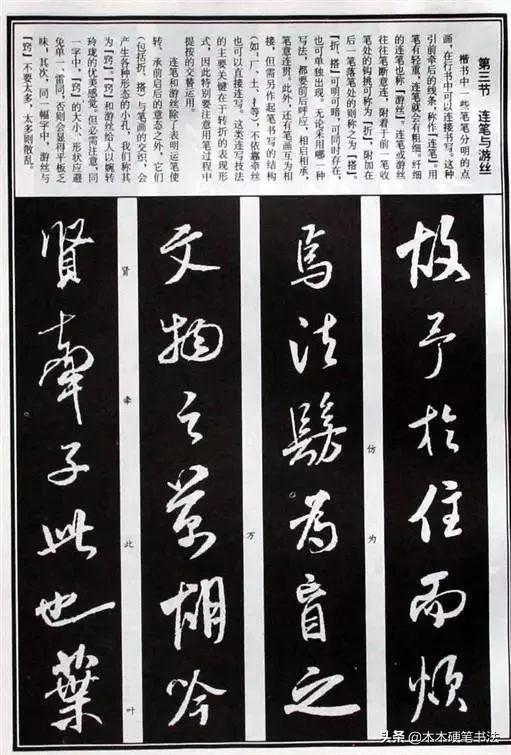 第三节 连笔与游丝
楷书中一些笔笔分明的点
画，在行书中可以连接书写。这种
引前牵后的线条，称作「连笔」。用
笔有轻重，连笔就会有粗细，纤细
的连笔也称「游丝」。连笔或游丝
往往笔断意连，附着于前一笔收
笔处的钩挑可称为「折」，附加在
后一笔落笔处的则称之为「搭」。
「折、搭」可明可暗，可同时存在，
也可单独出现。无论采用哪一种
写法，都要前后呼应，相启相承，
笔意连贯。此外，还有笔画互为相
接，但需另作起笔书写的结构
（如：厂、土、扌等），不依靠牵丝
也可以直接连写。这类连写技法
的主要关键在于转折的表现形
式，因此特别要注意用笔过程中
提按的交替运用。
连笔和游丝除了表明运笔使
转、承前启后的意态之外，它们
（包括折、搭）与笔画的交织，会
产生各种形态的小孔，我们称其
为「窍」。「窍」和游丝给人以婉转
玲珑的优美感觉。但必需注意，同
一字中，「窍」的大小、形状应避
免单一、雷同，否则会显得平板乏
味，其次，同一幅字中，游丝与
「窍」不要太多，太多则散乱。
故予於住而烦
仿为
焉法髣为盲之
万
文物之萬胡吟
贤牵此叶
賢牽子此也葉
头条 @本本硬笔书法